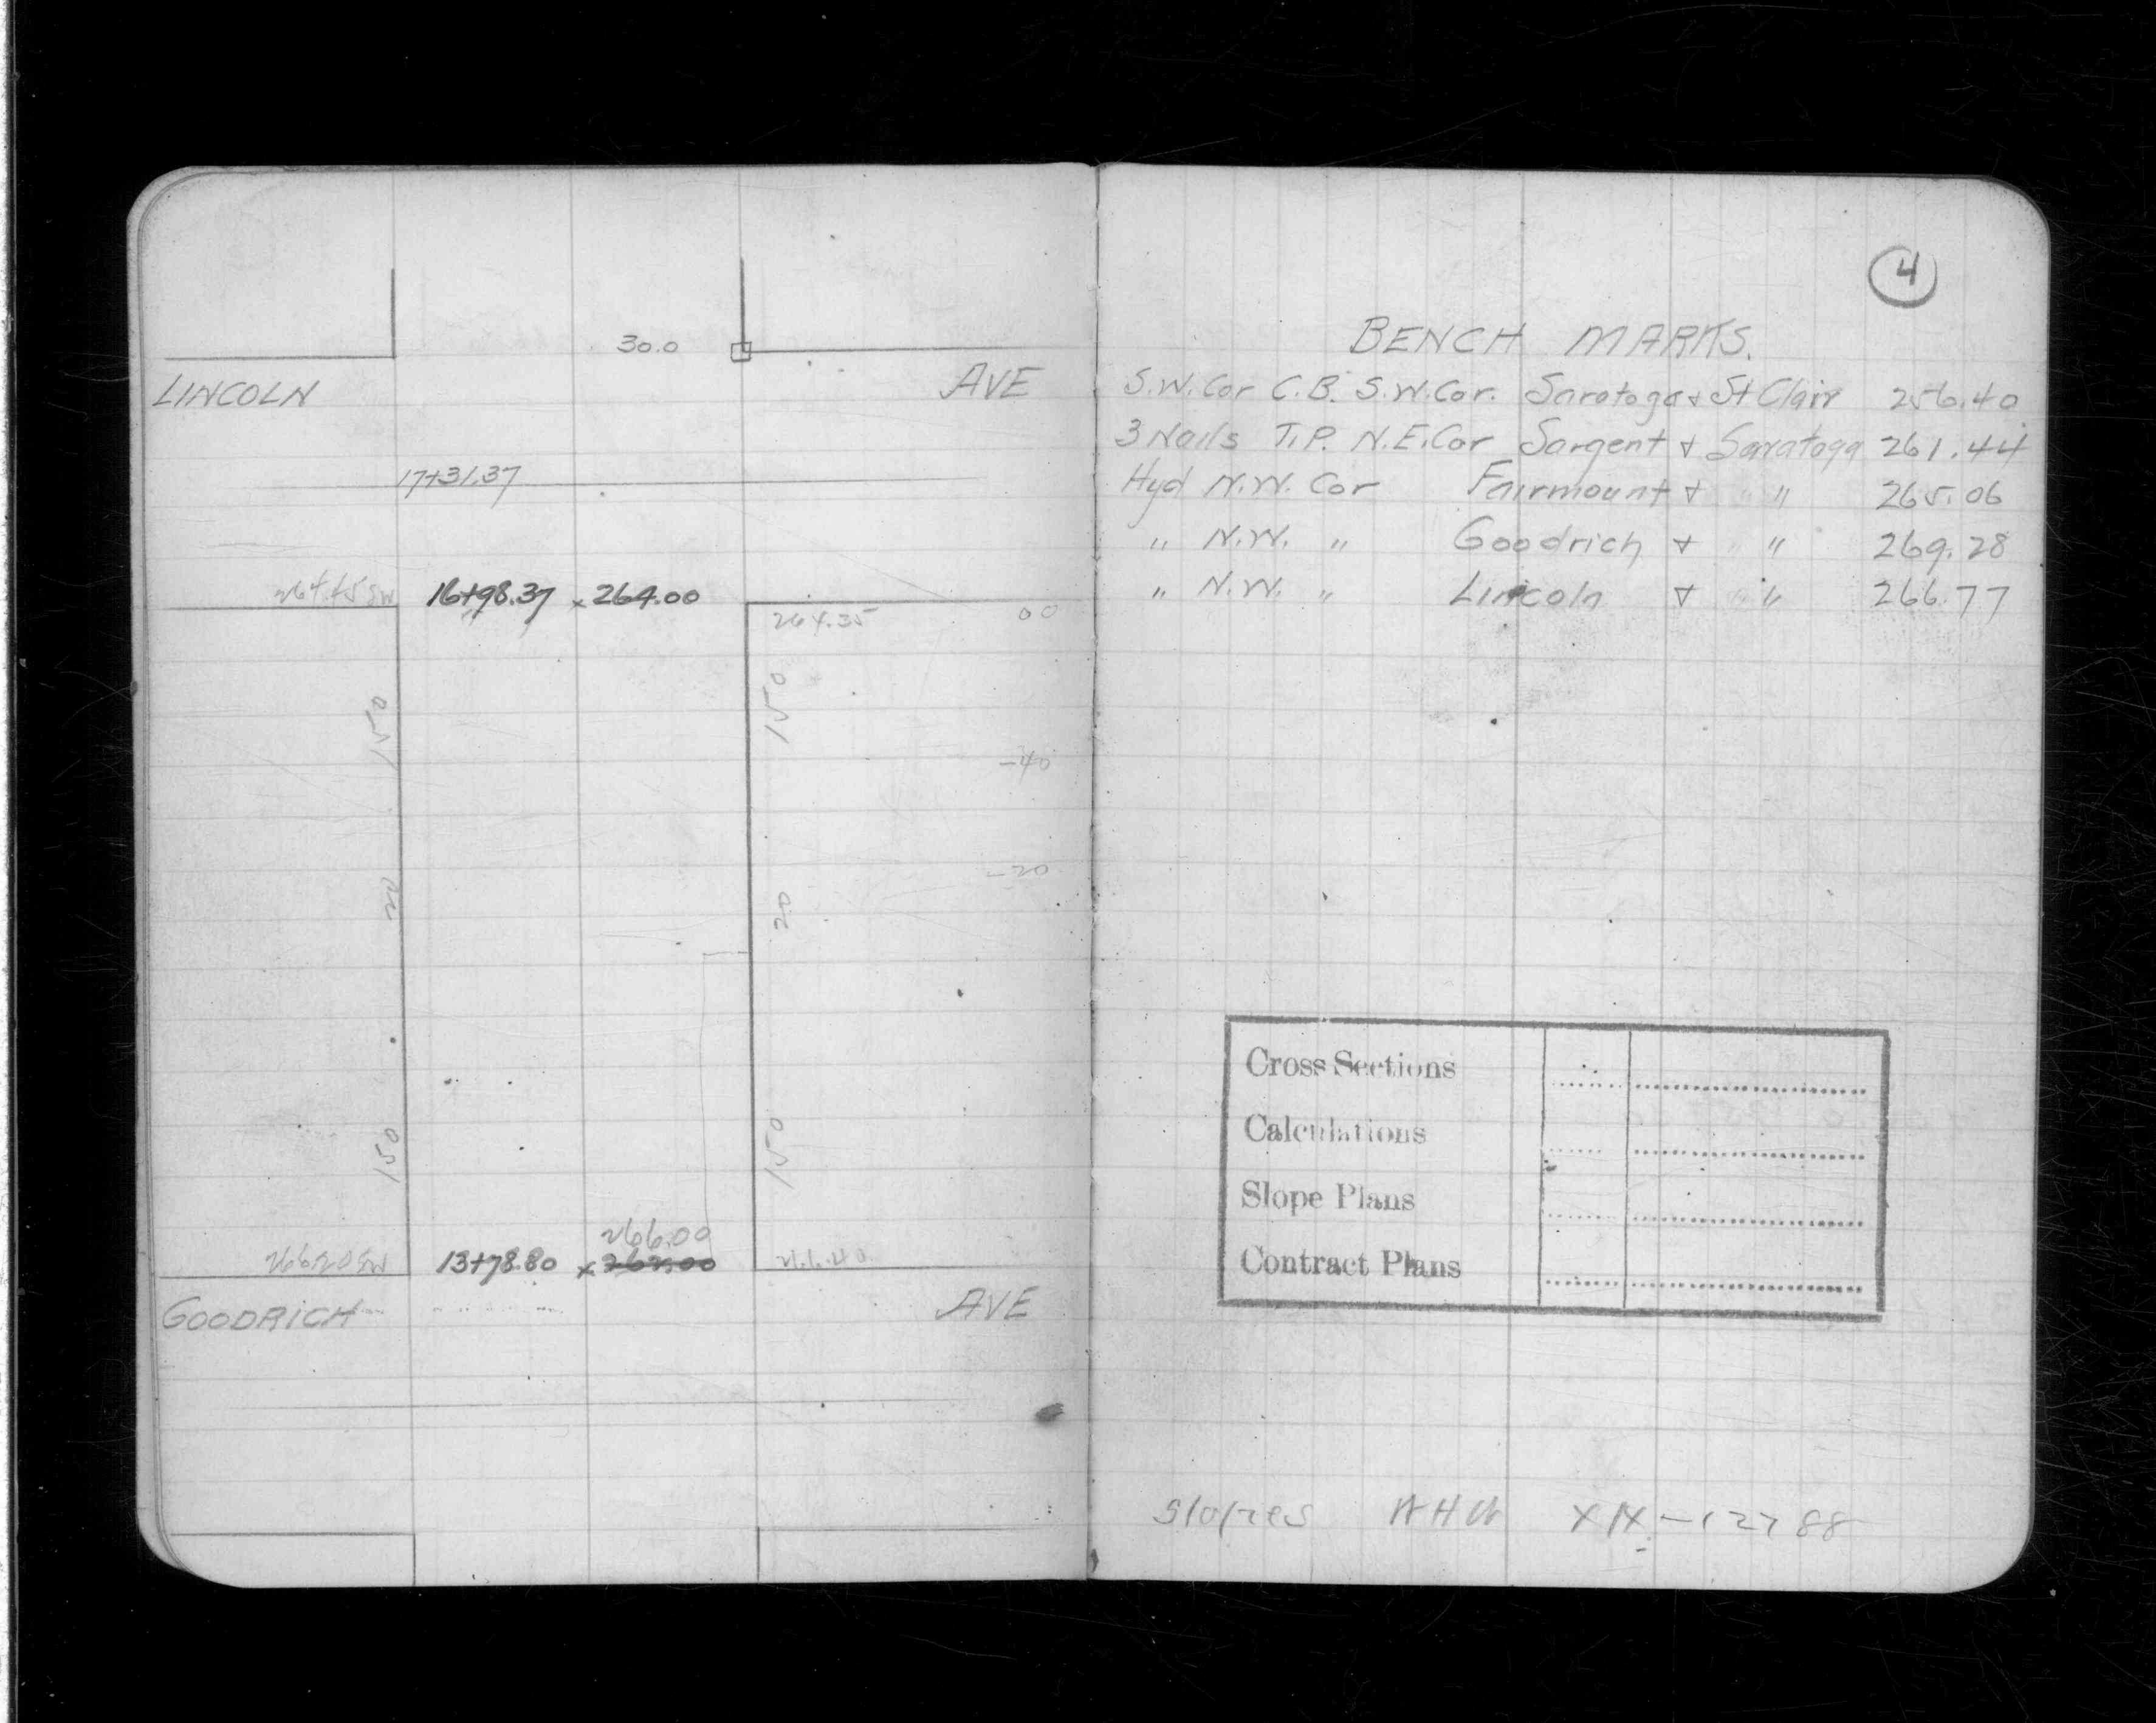 30.0
LINCOLN AVE
17+31.37
264.45 SW 16+98.37 x 264.00
264.35 00
150 150
-40
-20
20 20
150 150
266.00
266.20 SW 13+78.80 x 262.00 266.40
GOODRICH AVE
4
BENCH MARKS.
S.W. Cor C.B. S.W. Cor. Saratoga & St Clair 256.40
3 Nails T.P. N.E. Cor Sargent & Saratoga 261.44
Hyd N.W. Cor Fairmount & " " 265.06
" N.W. " Goodrich & " " 269.28
" N.W. " Lincoln & " " 266.77
Cross Sections
Calculations
Slope Plans
Contract Plans
Slopes